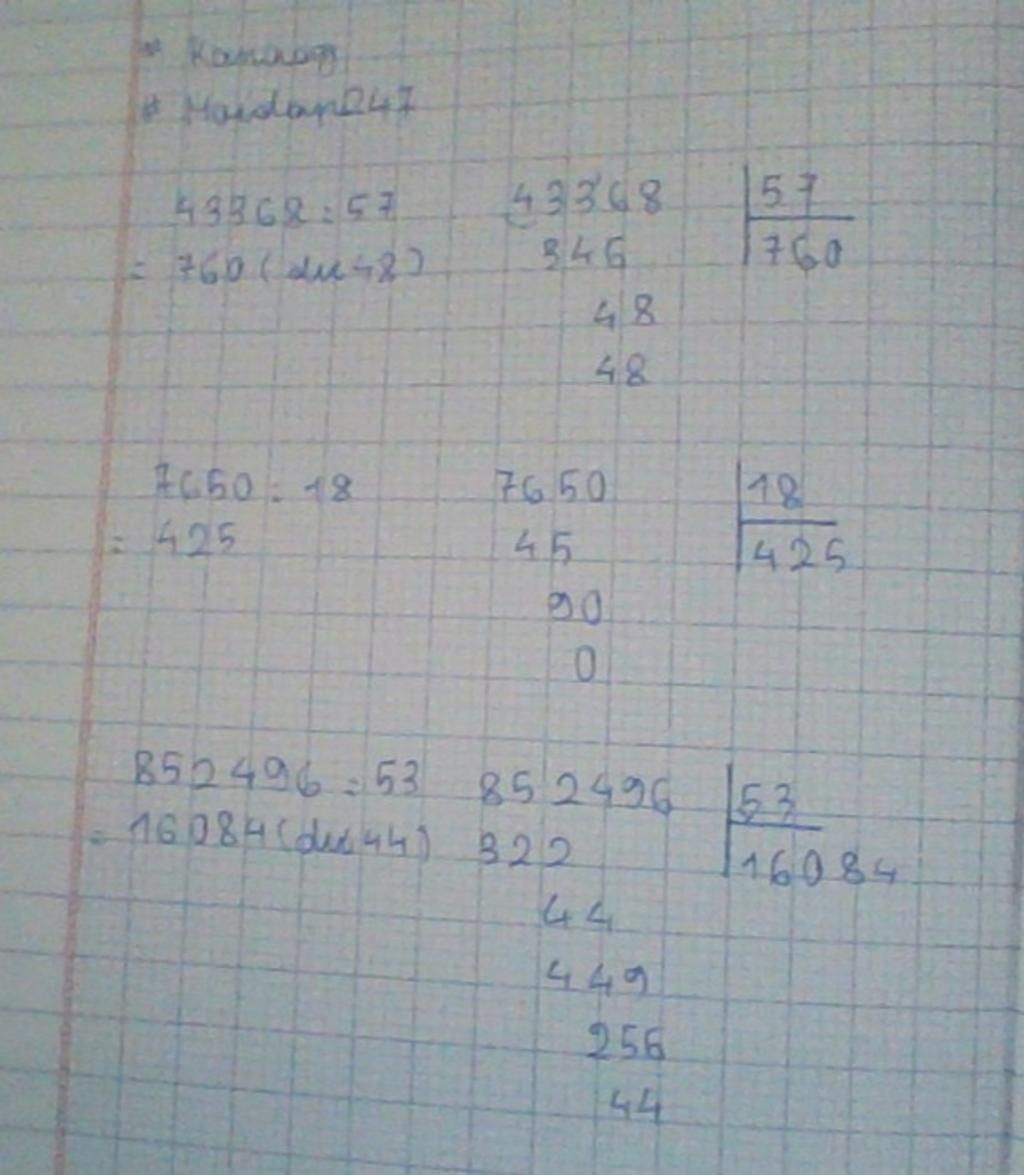 * Haidan247
43368 : 57
= 760 (dư 48)
43368 57
346 760
48
48
7650 : 18
= 425
7650 18
45 425
90
0
852496 : 53
= 16084 (dư 44)
852496 53
322 16084
44
449
256
44